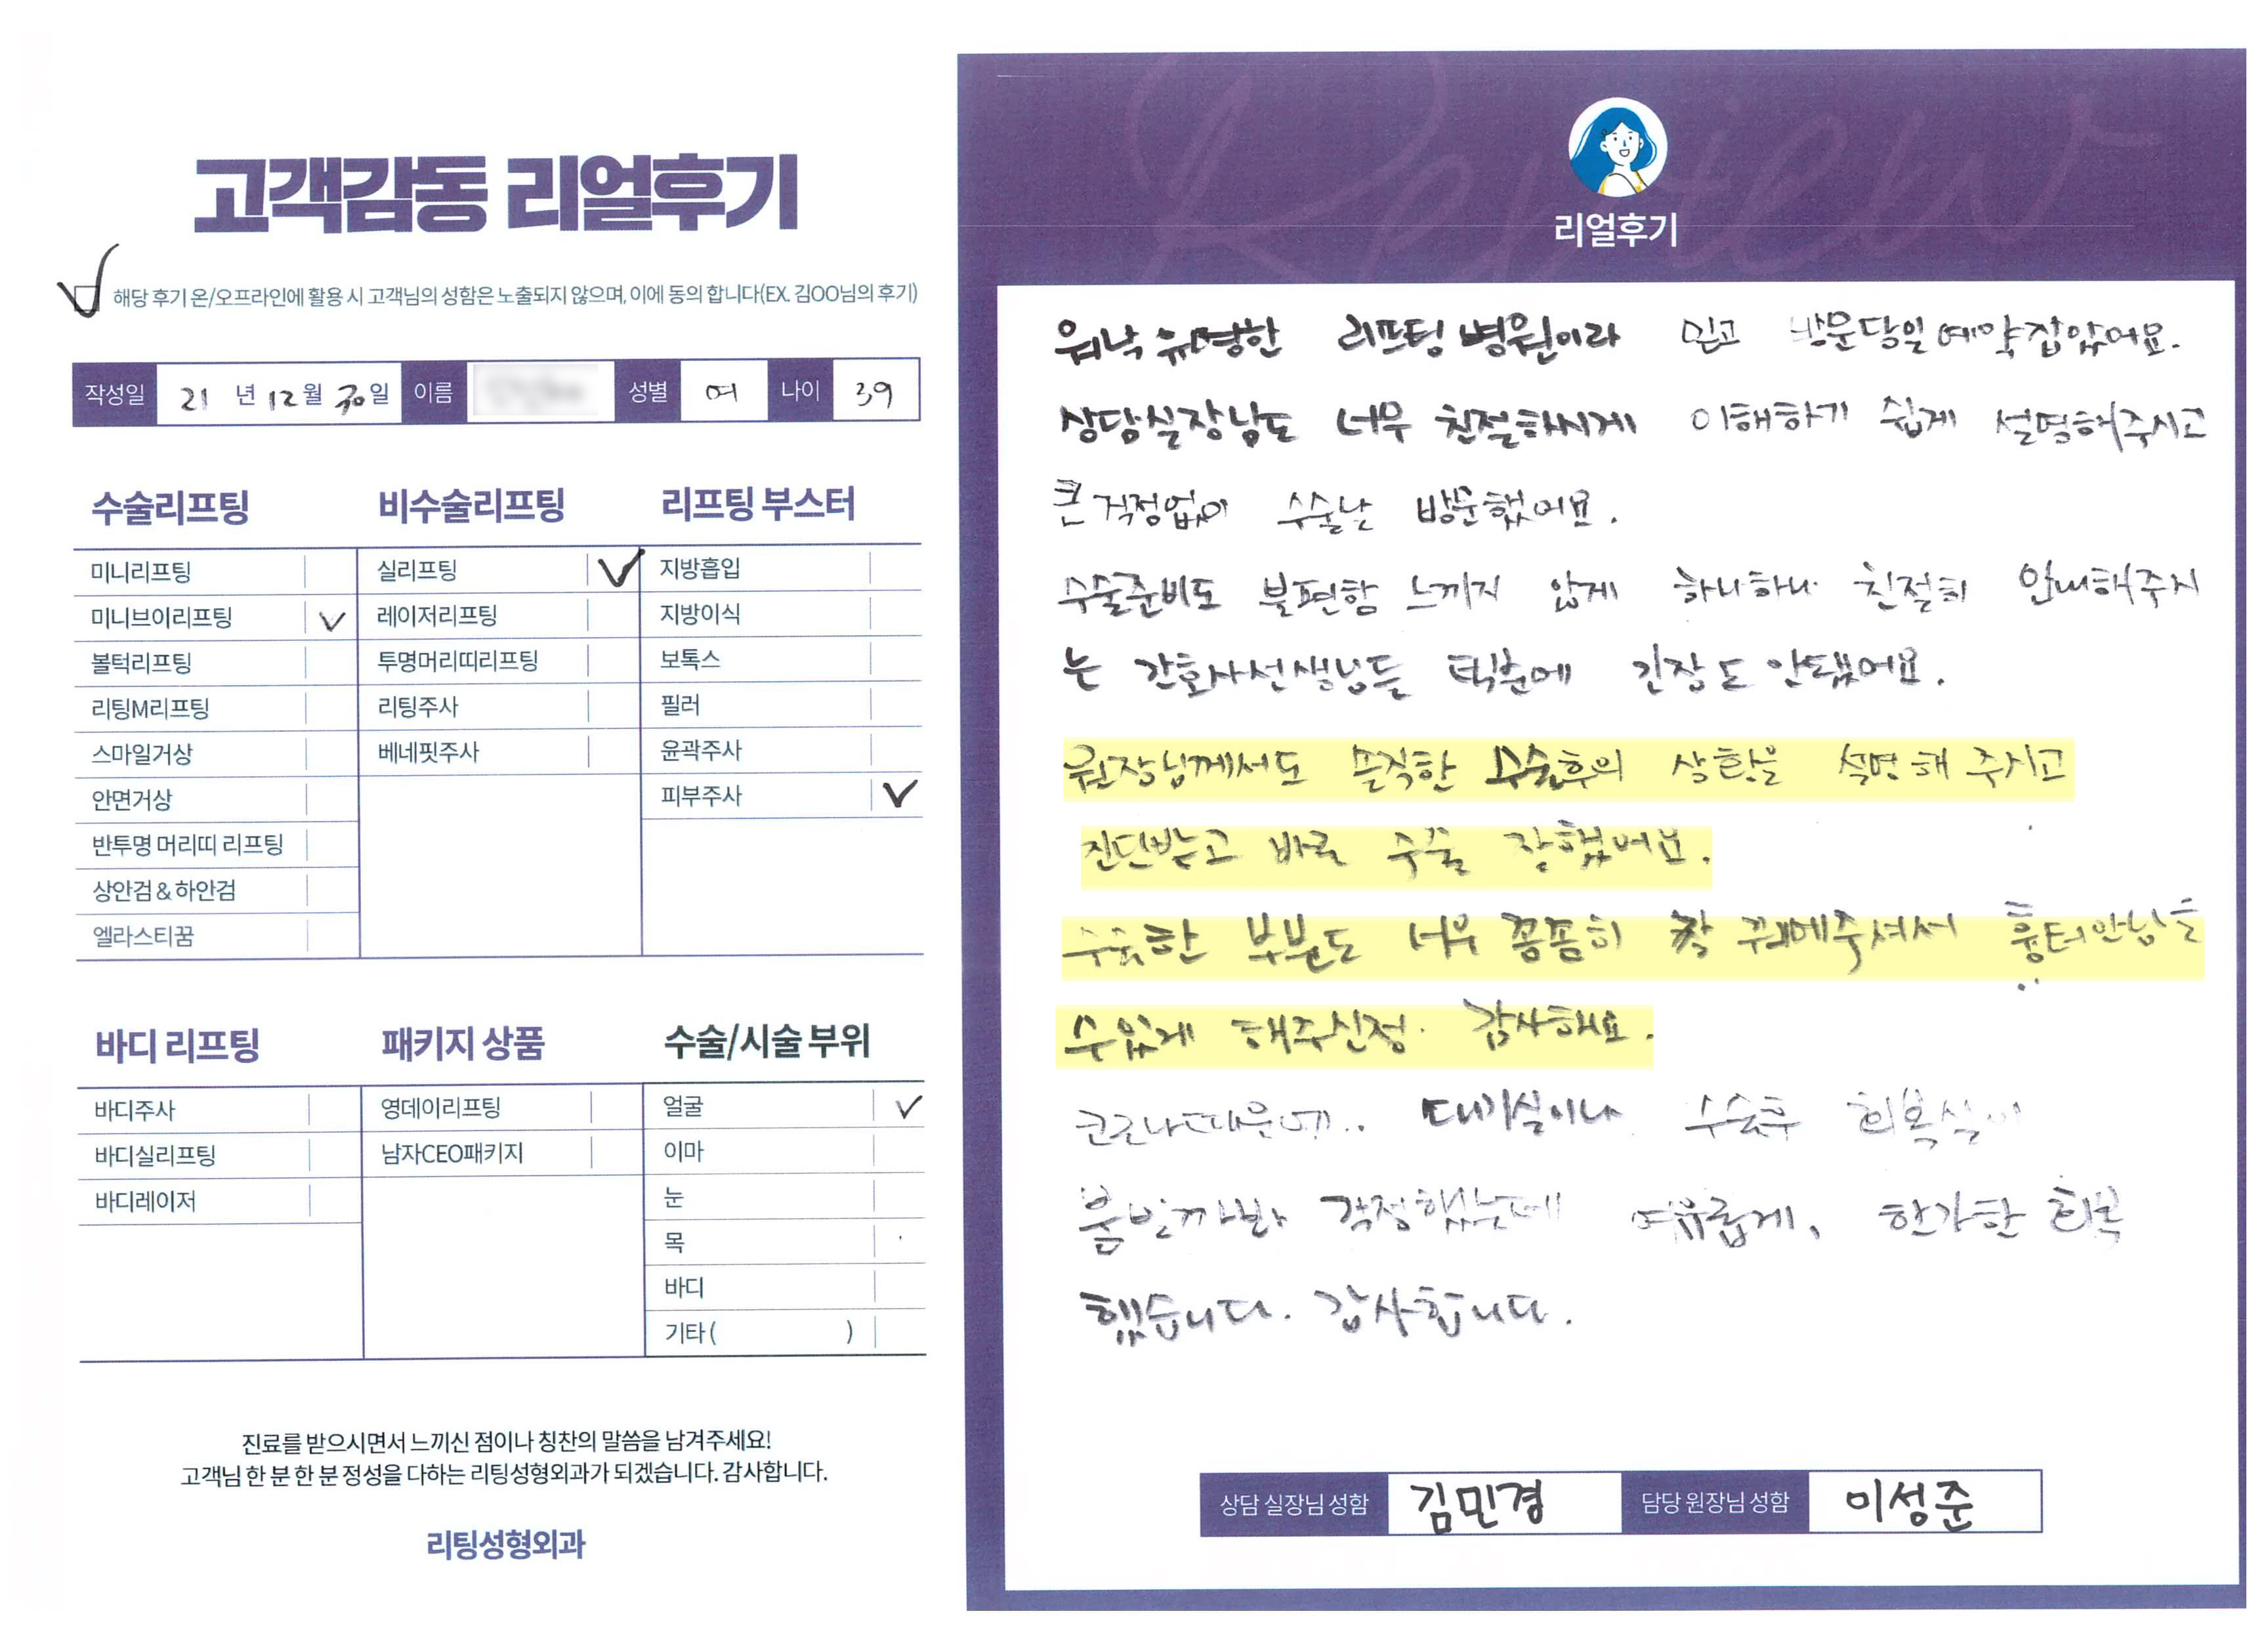 고객감동 리얼후기
해당 후기 온/오프라인에 활용 시 고객님의 성함은 노출되지 않으며, 이에 동의 합니다(EX. 김OO님의 후기)
작성일 21 년 12 월 30 일 이름 성별 여 나이 39
수술리프팅 비수술리프팅 리프팅 부스터
미니리프팅 실리프팅 지방흡입
미니브이리프팅 레이저리프팅 지방이식
볼턱리프팅 투명머리띠리프팅 보톡스
리팅M리프팅 리팅주사 필러
스마일거상 베네핏주사 윤곽주사
안면거상 피부주사
반투명 머리띠 리프팅
상안검 & 하안검
엘라스티꿈
바디 리프팅 패키지 상품 수술/시술 부위
바디주사 영데이리프팅 얼굴
바디실리프팅 남자CEO패키지 이마
바디레이저 눈
목
바디
기타 ( )
진료를 받으시면서 느끼신 점이나 칭찬의 말씀을 남겨주세요!
고객님 한 분 한 분 정성을 다하는 리팅성형외과가 되겠습니다. 감사합니다.
리팅성형외과
Review
리얼후기
워낙 유명한 리프팅 병원이라 믿고 방문당일 예약잡았어요.
상담실장님도 너무 친절하시게 이해하기 쉽게 설명해주시고
큰 걱정없이 수술날 방문했어요.
수술준비도 불편함 느끼지 않게 하나하나 친절히 안내해주시
는 간호사선생님들 덕분에 긴장도 안됐어요.
원장님께서도 솔직한 수술후의 상황을 설명해 주시고
진단받고 바로 수술 잘했어요.
수술한 부분도 너무 꼼꼼히 잘 꿰메주셔서 흉터안남을
수있게 해주신점. 감사해요.
코로나때문에.. 대기실이나 수술후 회복실이
붐빌까봐 걱정했는데 여유롭게, 한가한 회복
했습니다. 감사합니다.
상담 실장님 성함 김민경 담당 원장님 성함 이성준